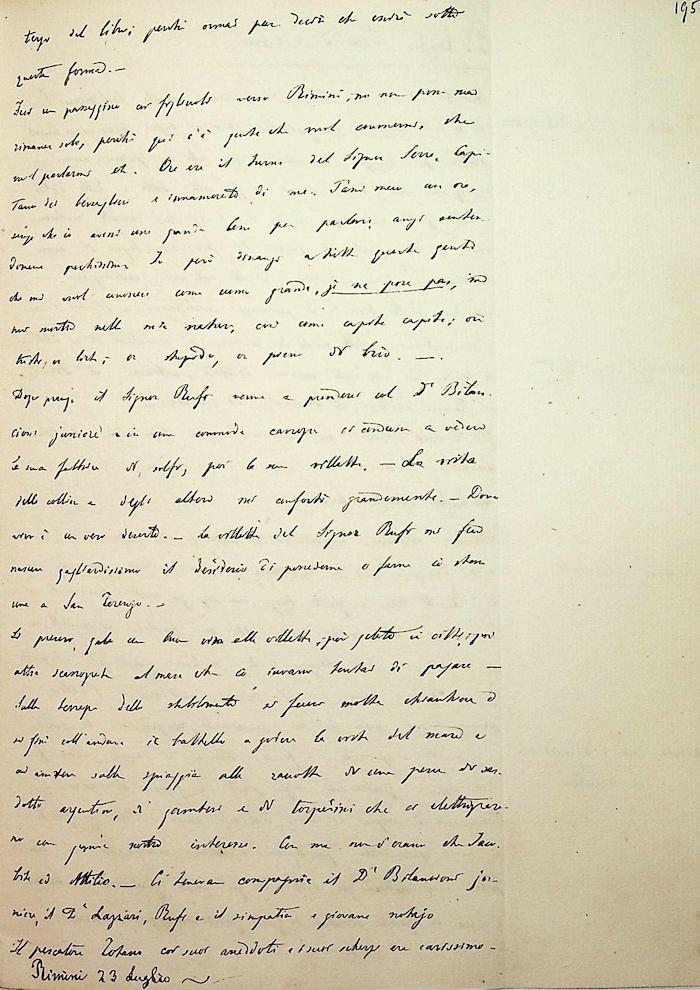 195
tergo del libro, perchè ormai par deciso che uscirà sotto
questa forma. —
Feci un passeggino coi figliuoli verso Rimini, ma non posso mai
rimaner solo, perchè qui c'è gente che vuol conoscermi, che
vuol parlarmi etc. Ora era il turno del Signor Serra, Capi-
tano dei bersaglieri e innamorato di me. Tanto meco un'ora,
che io avessi una grande per parlare, anzi
Io però dinanzi a tutta questa gente
che mi vuol conoscere come uomo grande, je ne pose pas, ma
mi mostro nella mia natura, così come capita capita; ora
tristo, or lieto; or stupido, or pieno di brio. —
Dopo pranzo il Signor Ruffo venne a prenderci col Dr Bilan-
cioni juniore e in una comoda carrozza ci condusse a vedere
la sua fabbrica di solfo, poi la sua villetta. — La vista
delle colline e degli alberi mi confortò grandemente. — Dove
vivo è un vero deserto. — La villetta del Signor Ruffo mi fece
nascere gagliardissimo il desiderio di possederne o farne
una a San Terenzo. —
Si pranzò, una alla villetta, poi gelato in città, poi
altra scarrozzata al mare che io invano tentai di pagare —
Sulla terrazza dello stabilimento si fecero molte chiacchiere e
si finì coll'andare in battello a godere la vista del mare e
ad assistere sulla spiaggia alla raccolta di una pesca di
argentini, di gamberi e di torpedini che ci elettrizzaro-
no con nostro interesse. Con me non v'erano che Jaco-
bite ed Attilio. — Ci tenevan compagnia il Dr Bilancioni ju-
niore, il Dr Lazzari, Ruffo e il simpatico e giovane notajo
Il pescatore Totano coi suoi aneddoti e i suoi scherzi era carissimo —
Rimini 23 Luglio